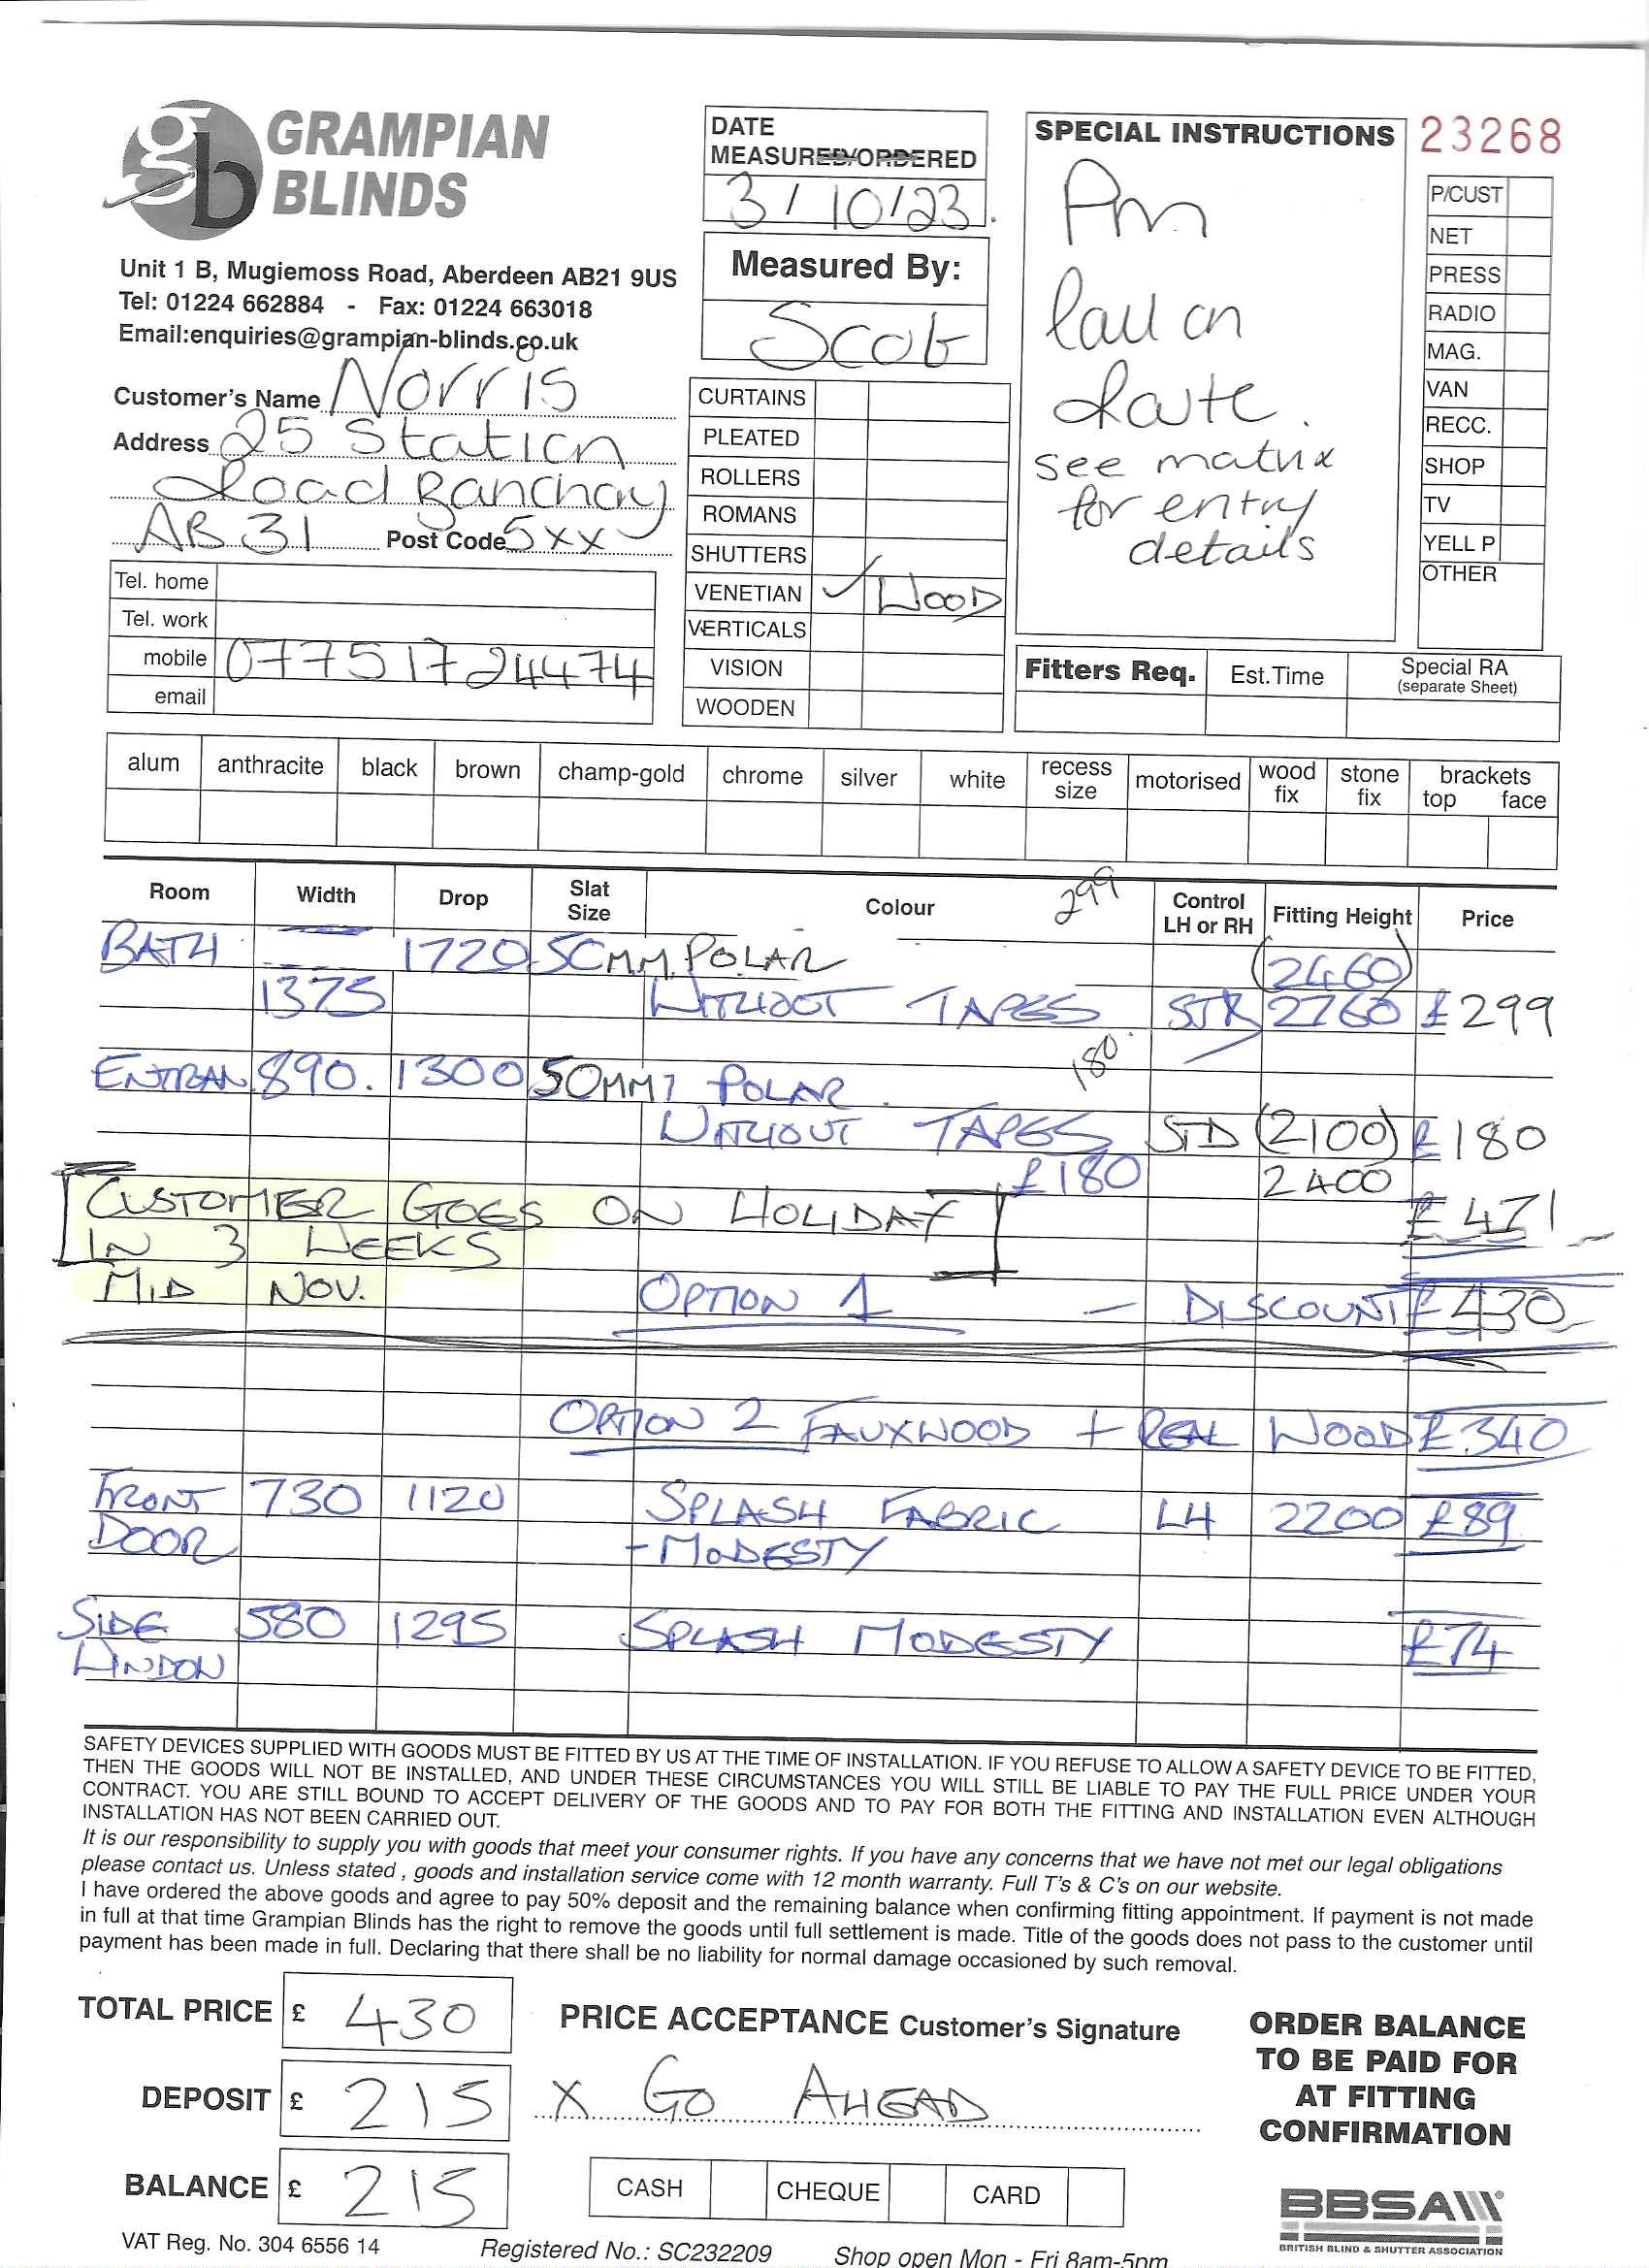 GRAMPIAN
BLINDS
gb
Unit 1 B, Mugiemoss Road, Aberdeen AB21 9US
Tel: 01224 662884 - Fax: 01224 663018
Email:enquiries@grampian-blinds.co.uk
Customer's Name Norris
Address 25 Station
Road Banchory
AB31 Post Code 5xx
Tel. home
Tel. work
mobile 07751724474
email
DATE
MEASURED/ORDERED
3/10/23.
Measured By:
Scot
CURTAINS
PLEATED
ROLLERS
ROMANS
SHUTTERS
VENETIAN ✓ WOOD
VERTICALS
VISION
WOODEN
SPECIAL INSTRUCTIONS
Pm
Call on
Route.
see matrix
for entry
details
23268
P/CUST
NET
PRESS
RADIO
MAG.
VAN
RECC.
SHOP
TV
YELL P
OTHER
Fitters Req. Est.Time Special RA
(separate Sheet)
alum anthracite black brown champ-gold chrome silver white recess size motorised wood fix stone fix brackets top face
Room Width Drop Slat Size Colour 299 Control LH or RH Fitting Height Price
BATH 1720 50MM POLAR (2460)
1375 WITHOUT TAPES 2760 £299
ENTRAN 890. 1300 50MM POLAR. 180
WITHOUT TAPES STD (2100) £180
£180 2400
CUSTOMER GOES ON HOLIDAY £471
IN 3 WEEKS
MID NOV. OPTION 1 - DISCOUNT £430
OPTION 2 FAUXWOOD + REAL WOOD £340
FRONT 730 1120 SPLASH FABRIC LH 2200 £89
DOOR - MODESTY
SIDE 580 1295 SPLASH MODESTY £74
WINDOW
SAFETY DEVICES SUPPLIED WITH GOODS MUST BE FITTED BY US AT THE TIME OF INSTALLATION. IF YOU REFUSE TO ALLOW A SAFETY DEVICE TO BE FITTED,
THEN THE GOODS WILL NOT BE INSTALLED, AND UNDER THESE CIRCUMSTANCES YOU WILL STILL BE LIABLE TO PAY THE FULL PRICE UNDER YOUR
CONTRACT. YOU ARE STILL BOUND TO ACCEPT DELIVERY OF THE GOODS AND TO PAY FOR BOTH THE FITTING AND INSTALLATION EVEN ALTHOUGH
INSTALLATION HAS NOT BEEN CARRIED OUT.
It is our responsibility to supply you with goods that meet your consumer rights. If you have any concerns that we have not met our legal obligations
please contact us. Unless stated , goods and installation service come with 12 month warranty. Full T's & C's on our website.
I have ordered the above goods and agree to pay 50% deposit and the remaining balance when confirming fitting appointment. If payment is not made
in full at that time Grampian Blinds has the right to remove the goods until full settlement is made. Title of the goods does not pass to the customer until
payment has been made in full. Declaring that there shall be no liability for normal damage occasioned by such removal.
TOTAL PRICE £ 430
DEPOSIT £ 215
BALANCE £ 215
PRICE ACCEPTANCE Customer's Signature
x Go AHEAD
CASH CHEQUE CARD
ORDER BALANCE
TO BE PAID FOR
AT FITTING
CONFIRMATION
BBSA
BRITISH BLIND & SHUTTER ASSOCIATION
VAT Reg. No. 304 6556 14 Registered No.: SC232209 Shop open Mon - Fri 8am-5pm